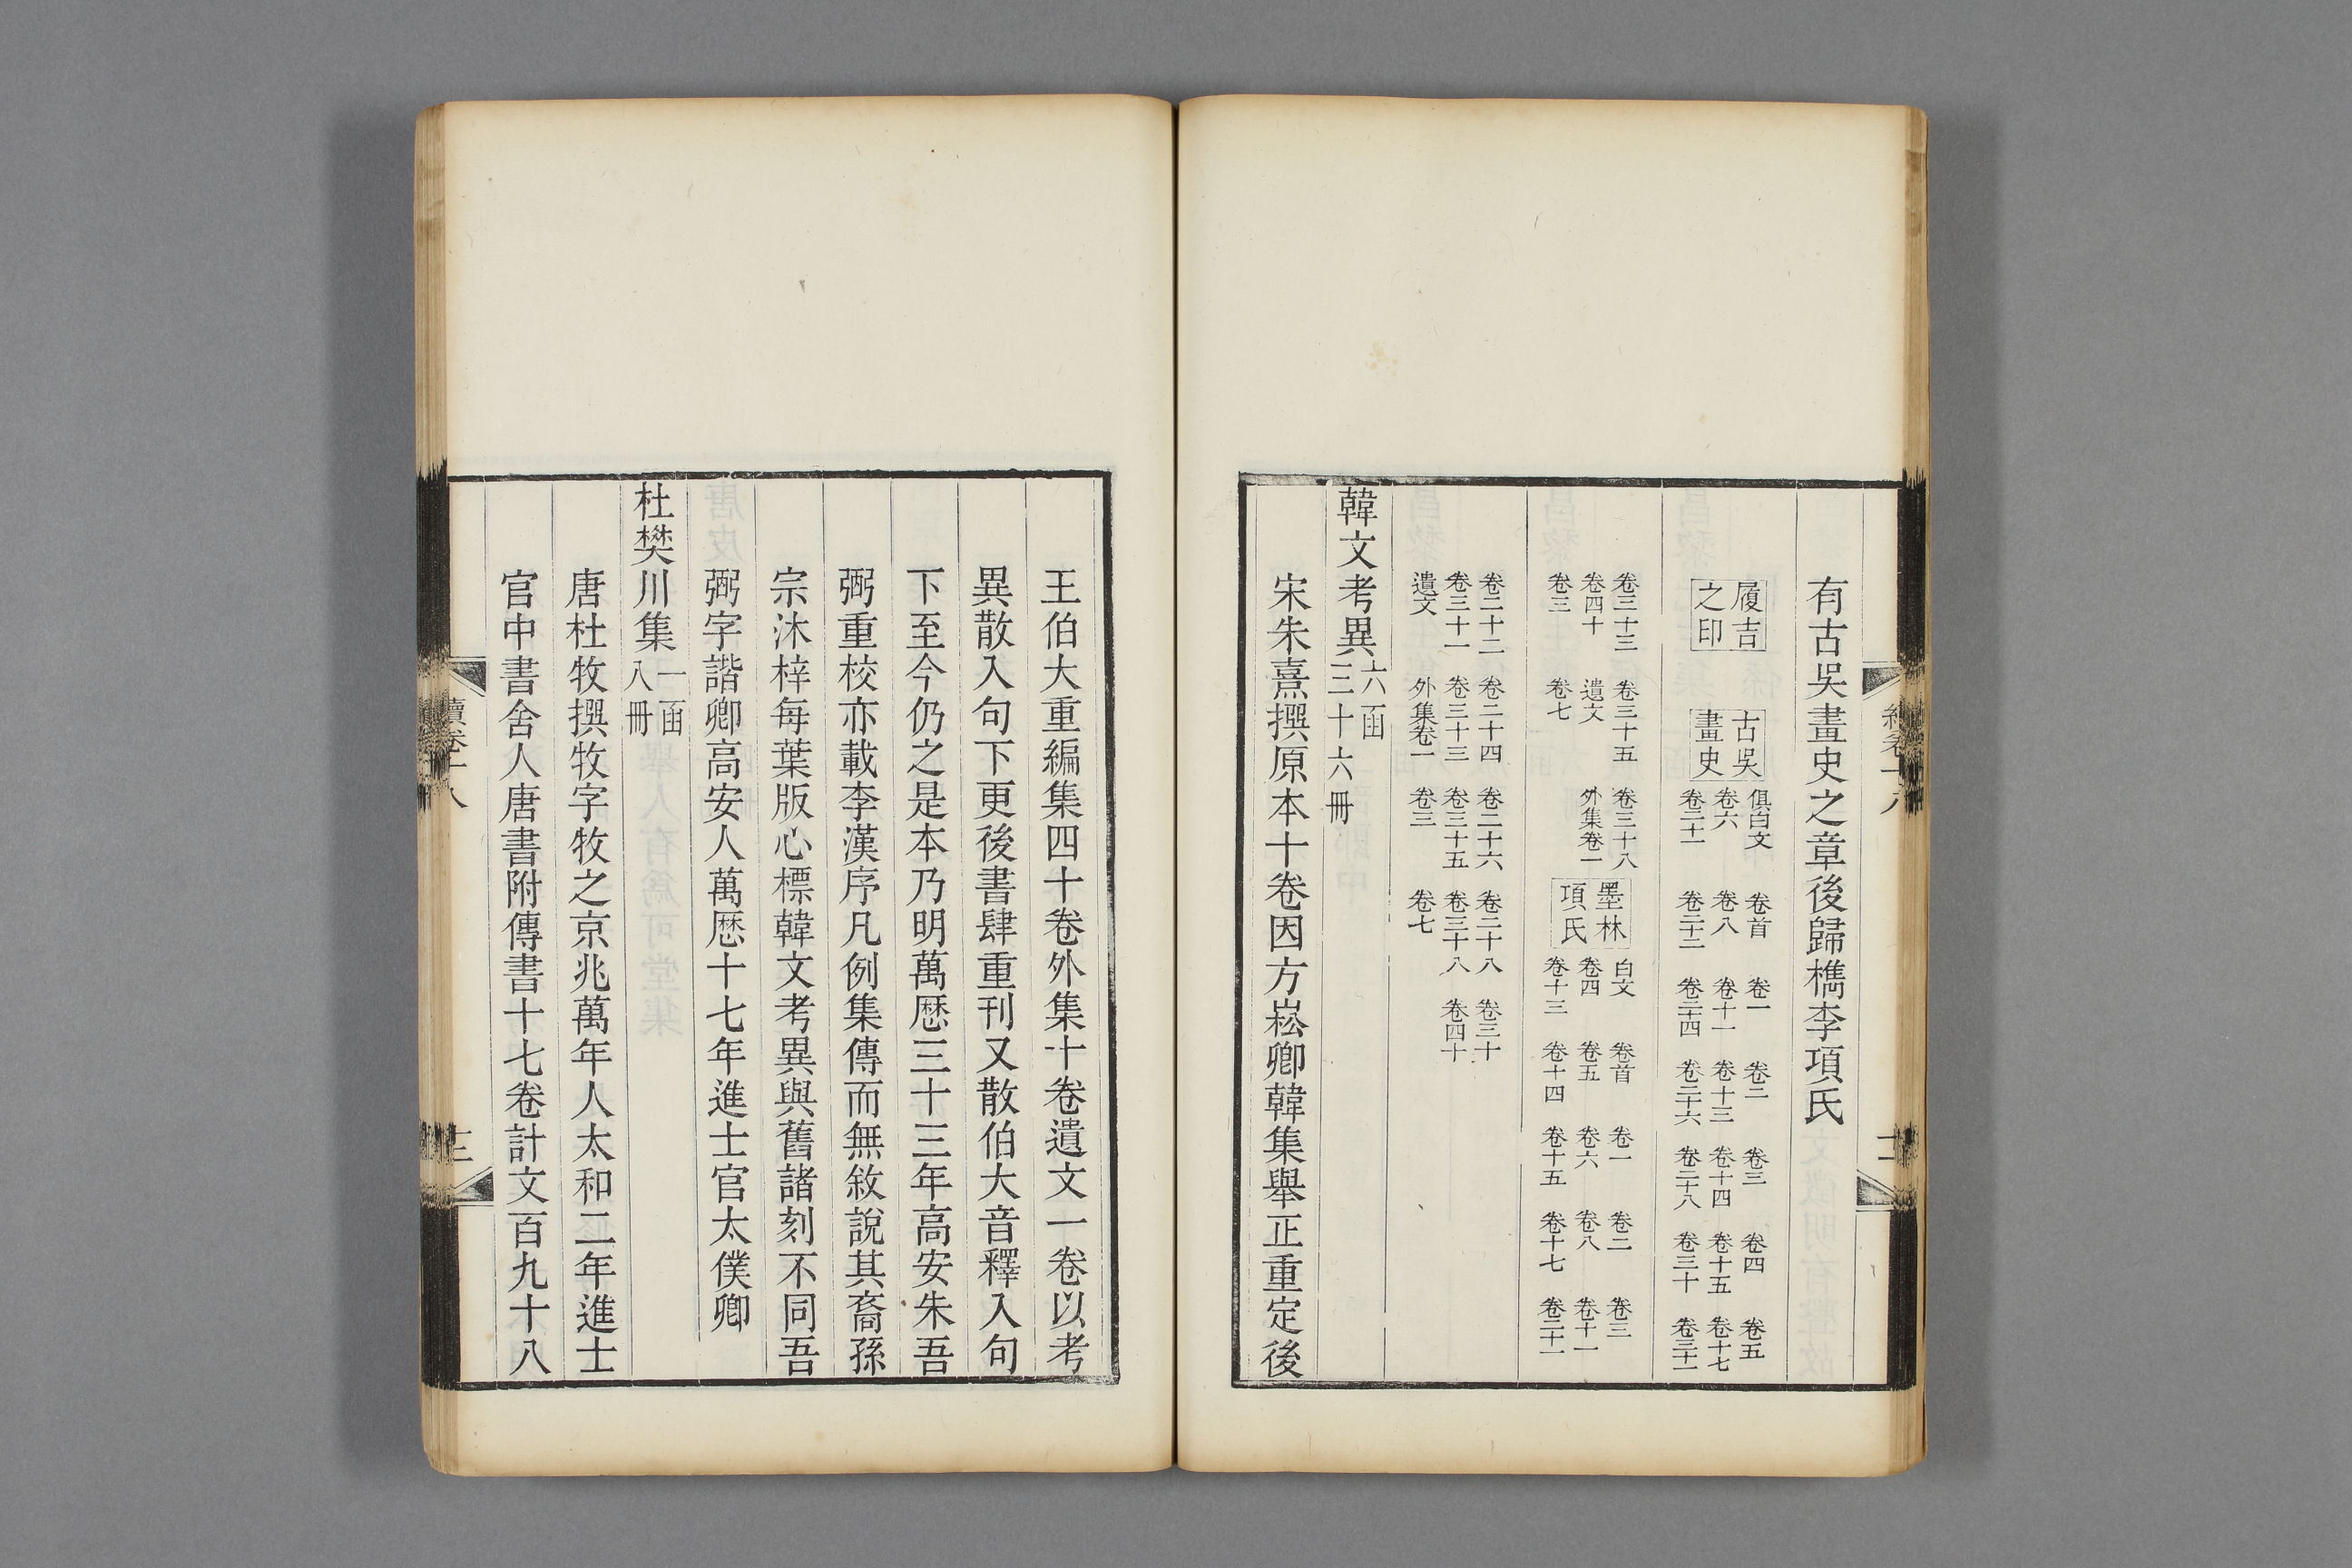 有古吳畫史之章後歸檇李項氏
履吉之印
古吳畫史
俱白文 卷首 卷一 卷二 卷三 卷四 卷五
卷六 卷八 卷十一 卷十三 卷十四 卷十五 卷十七
卷二十一 卷二十二 卷二十四 卷二十六 卷二十八 卷三十 卷三十一
卷三十三 卷三十五 卷三十八
卷四十 遺文 外集卷一
卷三 卷七
墨林項氏
白文 卷首 卷一 卷二 卷三
卷四 卷五 卷六 卷八 卷十一
卷十三 卷十四 卷十五 卷十七 卷二十一
卷二十二 卷二十四 卷二十六 卷二十八 卷三十
卷三十一 卷三十三 卷三十五 卷三十八 卷四十
遺文 外集卷一 卷三 卷七
韓文考異 六函 三十六冊
宋朱熹撰原本十卷因方崧卿韓集舉正重定後
王伯大重編集四十卷外集十卷遺文一卷以考
異散入句下更後書肆重刊又散伯大音釋入句
下至今仍之是本乃明萬厯三十三年高安朱吾
弼重校亦載李漢序凡例集傳而無敘說其裔孫
宗沐梓每葉版心標韓文考異與舊諸刻不同吾
弼字諧卿高安人萬厯十七年進士官太僕卿
杜樊川集 一函 八冊
唐杜牧撰牧字牧之京兆萬年人太和二年進士
官中書舍人唐書附傳書十七卷計文百九十八
續卷十八